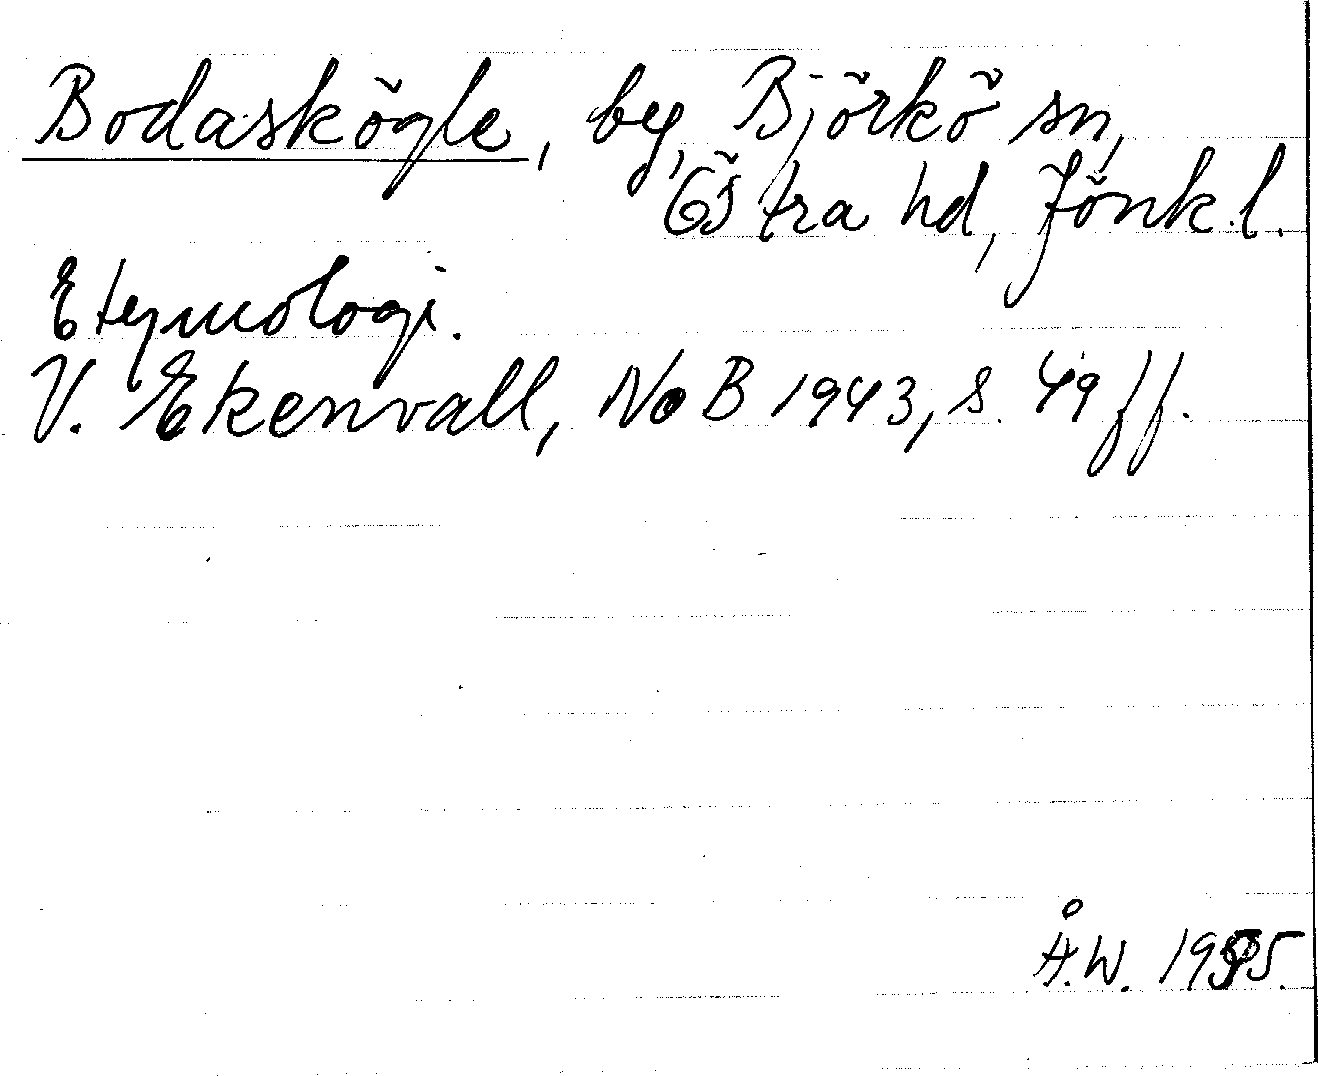 Bodaskögle, by, Björkö sn,
Östra hd, Jönk.l.
Etymologi.
V. Ekenvall, NoB 1943, s. 49 ff.
Å.W. 1955.